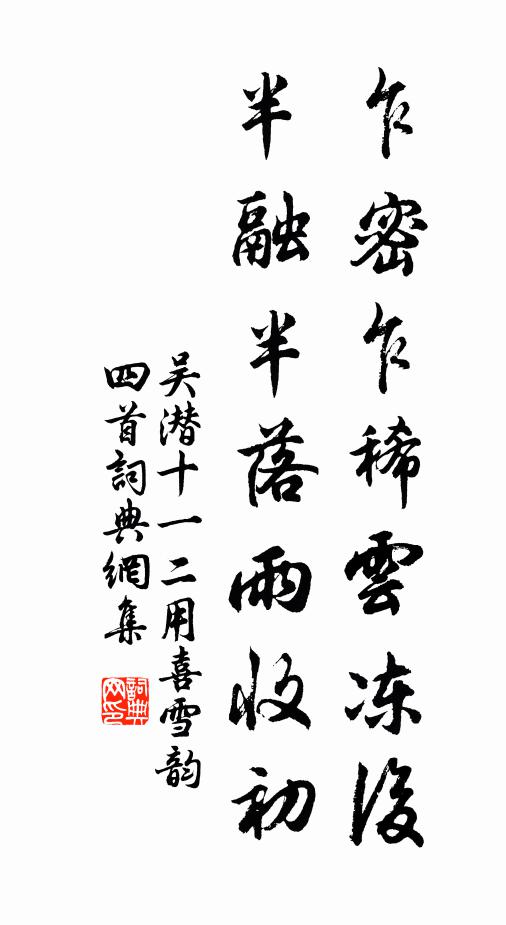 乍密乍稀雲冻後
半融半落雨收初
吴潜十一二用喜雪韵
四首詞典網集
詞典网印